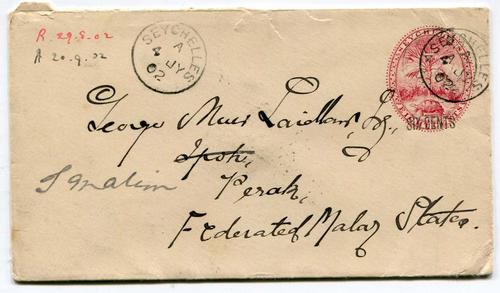 R. 29.8.02
A 20.9.02
SEYCHELLES
A
4 JY
02
SEYCHELLES
A
4 JY
02
SIX CENTS
George Muir Laidlaw, Esq.,
Ipoh,
Perak,
Federated Malay States.